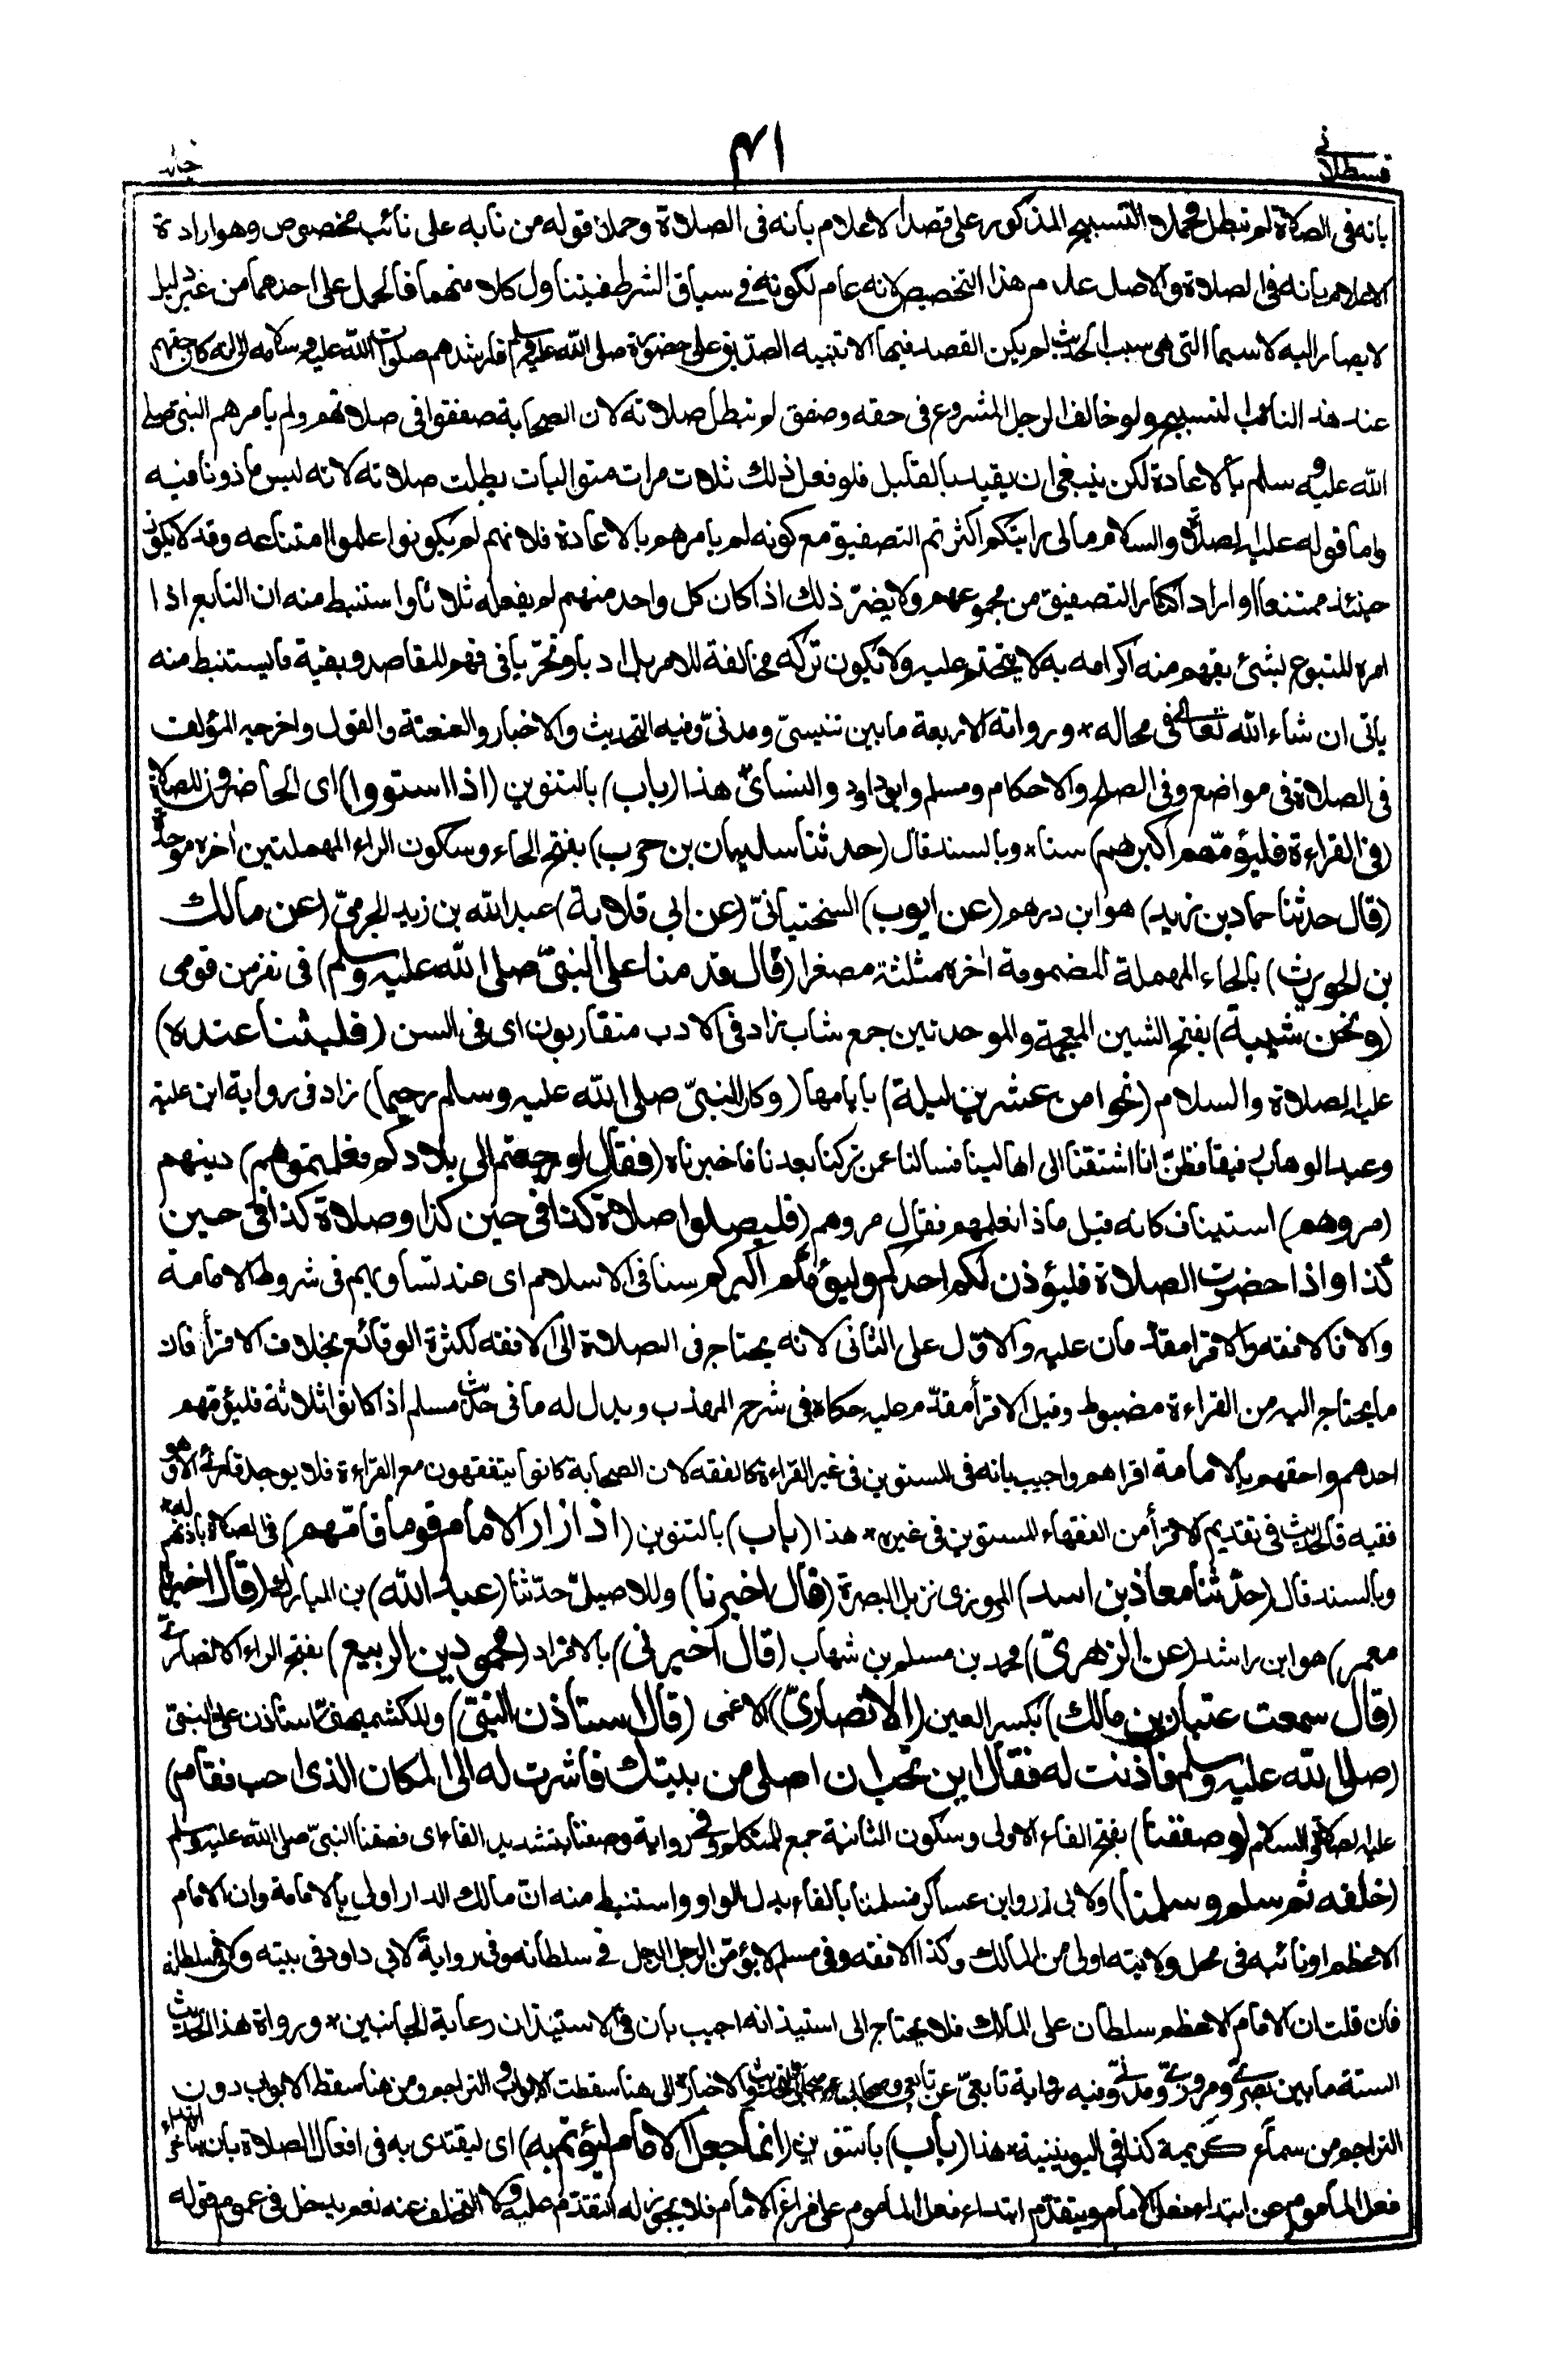 قسطلانی
۴۱
بانه فی الصلاة لم تبطل فحملا التسبیح المذکور علی قصد الاعلام بانه فی الصلاة وحملا قوله من نابه علی نائب مخصوص وهو ارادة
الاعلام بانه فی الصلاة والاصل عدم هذا التخصیص لانه عام لکونه فی سیاق الشرط فیتناول کلا منهما فالحمل علی احدهما من غیر دلیل
لا یصار الیه لا سیما التی هی سبب الحدیث لم یکن القصد فیها الا تنبیه الصدّیق علی حضوره صلی الله علیه وسلم فارشدهم صلوات الله علیه وسلامه الی انه کان حقهم
عند هذا النائب التسبیح ولو خالف الرجل المشروع فی حقه وصفق لم تبطل صلاته لان الصحابة صفقوا فی صلاتهم ولم یامرهم النبی صلی
الله علیه وسلم بالاعادة لکن ینبغی ان یقید بالقلیل فلو فعل ذلك ثلاث مرات متوالیات بطلت صلاته لانه لیس ماذونا فیه
واما قوله علیه الصلاة والسلام مالی رایتکم اکثرتم التصفیق مع کونه لم یامرهم بالاعادة فلانهم لم یکونوا علموا امتناعه وقد لا یکون
حینئذ ممتنعا او اراد اکثار التصفیق من مجموعهم ولا یضرّ ذلك اذا کان کل واحد منهم لم یفعله ثلاثا واستنبط منه ان التابع اذا
امره المتبوع بشئ یفهم منه اکرامه به لا یتحتم علیه ولا یکون ترکه مخالفة للامر بل ادبا وتحرّیا فی فهم المقاصد وبقیة ما یستنبط منه
یاتی ان شاء الله تعالی فی محاله * ورواته الاربعة ما بین تنیسیّ ومدنیّ وفیه التحدیث والاخبار والعنعنة والقول واخرجه المؤلف
فی الصلاة فی مواضع وفی الصلح والاحکام ومسلم وابو داود والنسائیّ * هذا (باب) بالتنوین (اذا استووا) ای الحاضرون للصلاة
(فی القراءة فلیؤمّهم اکبرهم) سنا * وبالسند قال (حدثنا سلیمان بن حرب) بفتح الحاء وسکون الراء المهملتین اخره موحدة
(قال حدثنا حماد بن زید) هو ابن درهم (عن ایوب) السختیانیّ (عن ابی قلابة) عبد الله بن زید الجرمیّ (عن مالك
بن الحویرث) بالحاء المهملة المضمومة اخره مثلثة مصغرا (قال قدمنا علی النبیّ صلی الله علیه وسلم) فی نفر من قومی
(ونحن شببة) بفتح الشین المعجمة والموحدتین جمع شاب زاد فی الادب متقاربون ای فی السن (فلبثنا عنده)
علیه الصلاة والسلام (نحوا من عشرین لیلة) بایامها (وکان النبیّ صلی الله علیه وسلم رحیما) زاد فی روایة ابن علیة
وعبد الوهاب رفیقا فظنّ انا اشتقنا الی اهالینا فسالنا عمن ترکنا بعدنا فاخبرناه (فقال لو رجعتم الی بلادکم فعلمتموهم) دینهم
(مروهم) استیناف کانه قیل ماذا نعلمهم فقال مروهم (فلیصلوا صلاة کذا فی حین کذا وصلاة کذا فی حین
کذا واذا حضرت الصلاة فلیؤذن لکم احدکم ولیؤمّکم اکبرکم سنا فی الاسلام ای عند تساویهم فی شروط الامامة
والا فالافقه والاقرا مقدّمان علیه والاوّل علی الثانی لانه یحتاج فی الصلاة الی الافقه لکثرة الوقائع بخلاف الاقرأ فان
ما یحتاج الیه من القراءة مضبوط وقیل الاقرأ مقدّم علیه حکاه فی شرح المهذب ویدل له ما فی حدیث مسلم اذا کانوا ثلاثة فلیؤمّهم
احدهم واحقهم بالامامة اقراهم واجیب بانه فی المستوین فی غیر القراءة کالفقه لان الصحابة کانوا یتفقهون مع القراءة فلا یوجد قارئ الا وهو
فقیه فالحدیث فی تقدیم الاقرأ من الفقهاء المستوین فی غیره * هذا (باب) بالتنوین (اذا زار الامام قوما فامّهم) فی الصلاة باذنهم له *
وبالسند قال (حدّثنا معاذ بن اسد) المروزی نزیل البصرة (قال اخبرنا) وللاصیلیّ حدّثنا (عبد الله) بن المبارك (قال اخبرنا
معمر) هو ابن راشد (عن الزهریّ) محمد بن مسلم بن شهاب (قال اخبرنی) بالافراد (محمود بن الربیع) بفتح الراء الانصاریّ
(قال سمعت عتبان بن مالك) بکسر العین (الانصاریّ) الاعمی (قال استاذن النبیّ) وللکشمیهنیّ استاذن علی النبیّ
(صلی الله علیه وسلم فاذنت له فقال این تحب ان اصلی من بیتك فاشرت له الی المکان الذی احب فقام)
علیه الصلاة والسلام (وصففنا) بفتح الفاء الاولی وسکون الثانیة جمع للمتکلم وفی روایة وصفنا بتشدید الفاء ای فصفنا النبیّ صلی الله علیه وسلم
(خلفه ثم سلم وسلمنا) ولابی ذر وابن عساکر فسلمنا بالفاء بدل الواو واستنبط منه انّ مالك الدار اولی بالامامة وان الامام
الاعظم او نائبه فی محل ولایته اولی من المالك وکذا الافقه وفی مسلم لا یؤمّن الرجل الرجل فی سلطانه وفی روایة لابی داود فی بیته ولا فی سلطانه
فان قلت ان الامام الاعظم سلطان علی المالك فلا یحتاج الی استیذانه اجیب بان فی الاستیذان رعایة الجانبین * ورواة هذا الحدیث
الستة ما بین بصریّ ومروزیّ ومدنیّ وفیه روایة تابعیّ عن تابعیّ وصحابی عن صحابی والتحدیث والاخبار * الی هنا سقطت الابواب والتراجم ومن هنا سقط الابواب دون
التراجم من سماع کریمة کذا فی الیونینیة * هذا (باب) بالتنوین (انما جعل الامام لیؤتم به) ای لیقتدی به فی افعال الصلاة بان یتاخر ابتداء
فعل المأموم عن ابتداء فعل الامام ویتقدّم ابتداء فعل المأموم علی فراغ الامام فلا یجوز له التقدّم علیه ولا التخلف عنه نعم یدخل فی عموم قوله